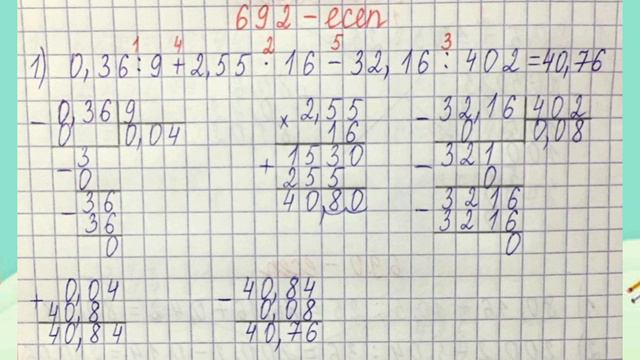 692-есеп
1 4 2 5 3
1) 0,36:9+2,55·16-32,16:402=40,76
- 0,36 9 × 2,55 - 32,16 402
0 0,04 16 0 0,08
- 3 + 1530 - 321
0 255 0
- 36 40,80 - 3216
36 3216
0 0
+ 0,04 - 40,84
40,8 0,08
40,84 40,76